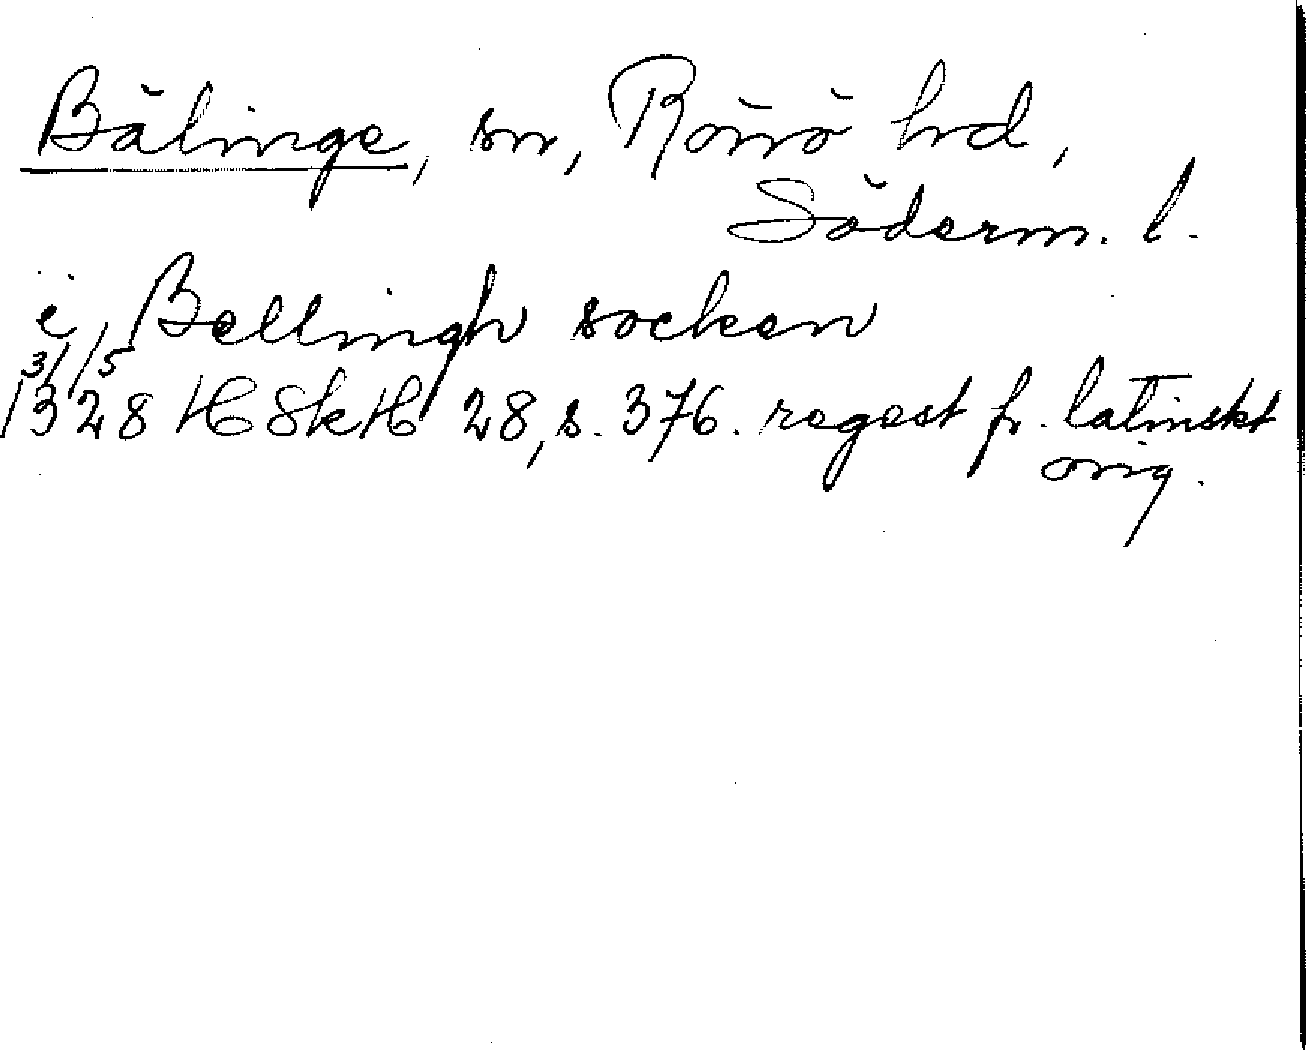 Bälinge, sn, Rönö hd,
Söderm. l.
i Bellingh socken
31/5
1328 HSkH 28, s. 376. regest fr. latinskt
orig.